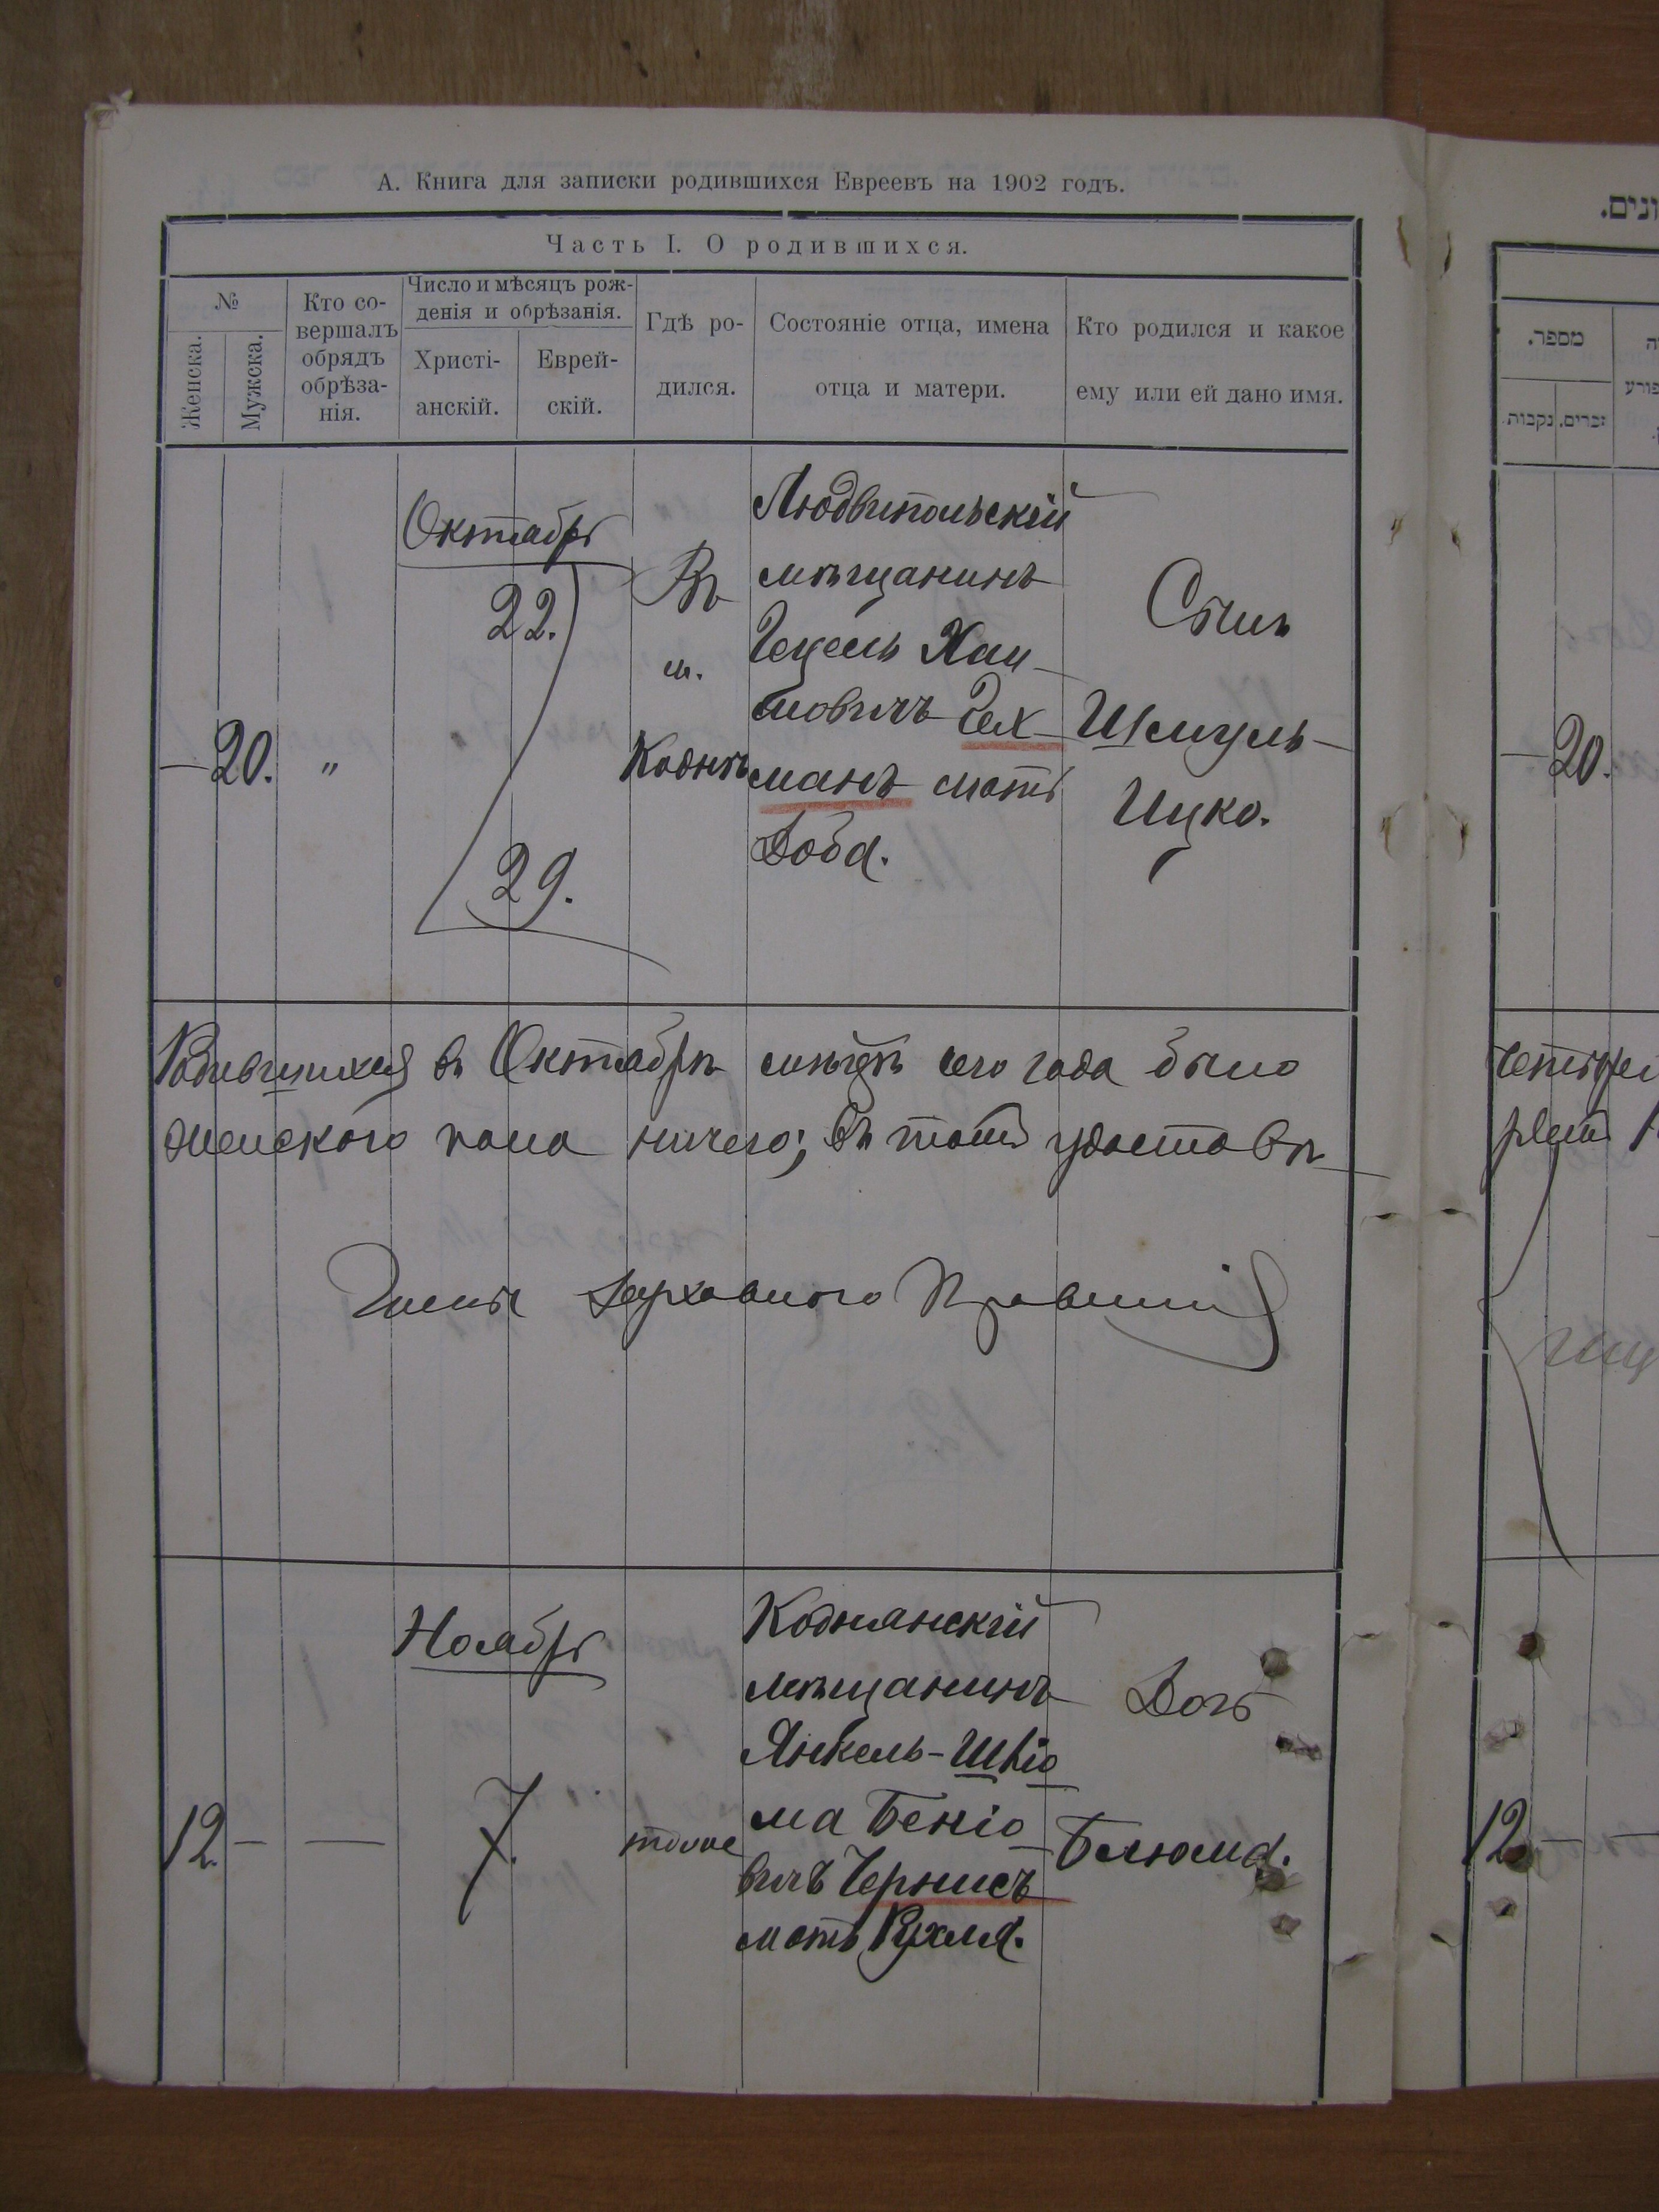 А. Книга для записки родившихся Евреевъ на 1902 годъ.
Часть I. О родившихся.
№
Женска.
Мужска.
Кто со-
вершалъ
обрядъ
обрѣза-
нія.
Число и мѣсяцъ рож-
денія и обрѣзанія.
Христі-
анскій.
Еврей-
скій.
Гдѣ ро-
дился.
Состояніе отца, имена
отца и матери.
Кто родился и какое
ему или ей дано имя.
— 20.
"
Октябрь
22.
29.
Въ
м.
Коднѣ
Людвипольскій
мѣщанинъ
Гецель Хаи-
мовичъ Гех-
манъ мать
Доба.
Сынъ
Шмуль-
Ицко.
Родившихся въ Октябрѣ мѣсяцѣ сего года было
женскаго пола ничего; въ томъ удостовѣ-
Члены Духовнаго Правленія
12 — —
Ноябрь
7.
тоже
Коднянскій
мѣщанинъ
Янкель-Шліо
ма Беніо
вичъ Чернисъ
мать Рухля.
Дочь
Блюма.
מספר.
זכרים.
נקבות.
— 20.
четыре
12 — —